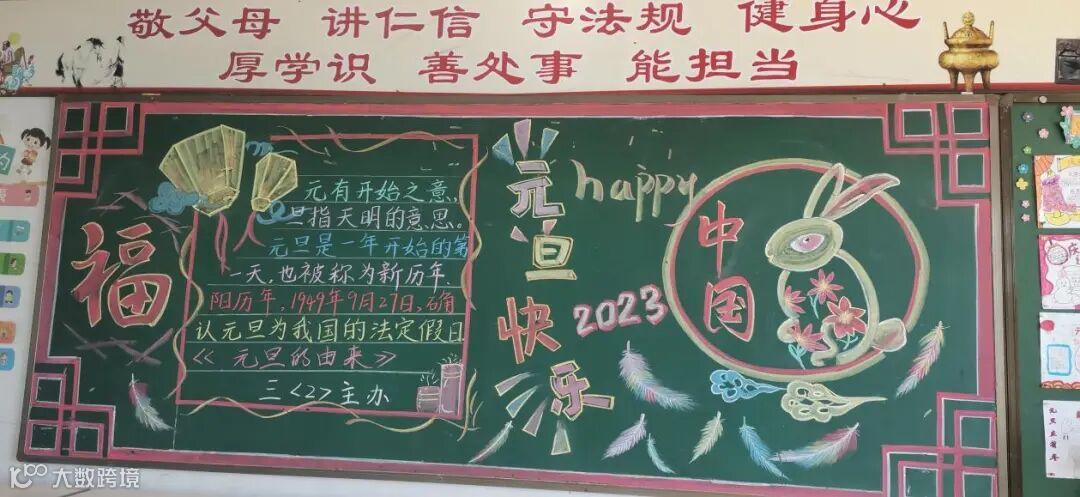 敬父母 讲仁信 守法规 健身心
厚学识 善处事 能担当
福
元有开始之意，
旦指天明的意思。
元旦是一年开始的第
一天，也被称为新历年、
阳历年，1949年9月27日，确
认元旦为我国的法定假日
《元旦的由来》
三〈2〉主办
元旦快乐
happy
2023
中国
大数跨境